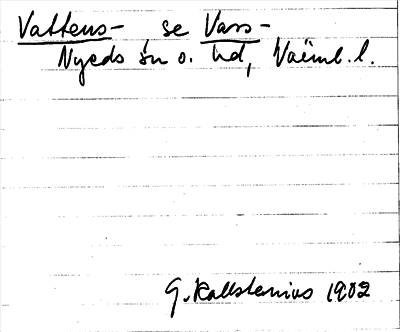 Vattens-, se Vass-
Nyeds sn o. hd, Värml. l.
G. Kallstenius 1902